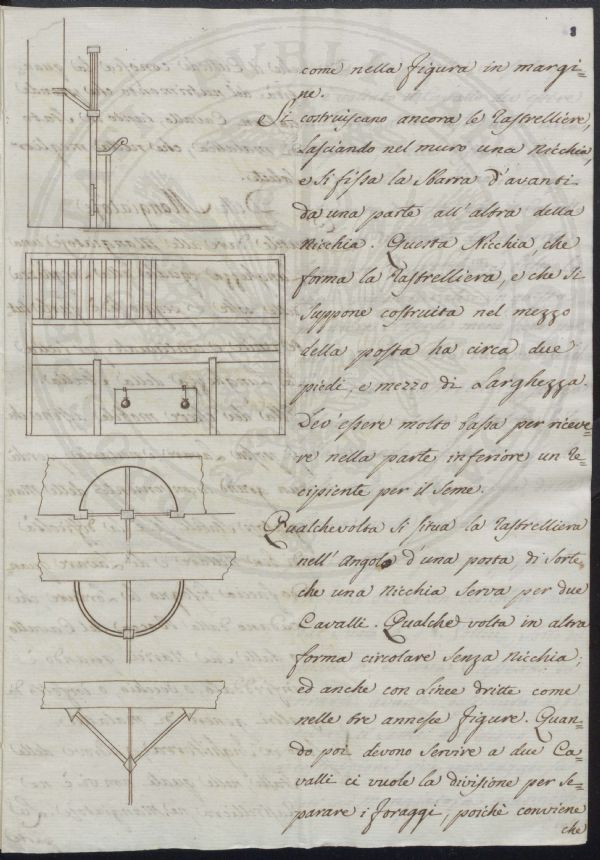 come nella figura in margi=
ne.
Si costruiscano ancora le Rastrelliere,
lasciando nel muro una Nicchia,
e si fissa la Sbarra d'avanti
da una parte all'altra della
Nicchia. Questa Nicchia che
forma la Rastrelliera, e che si
suppone costruita nel mezzo
della posta ha circa due
piedi, e mezzo di Larghezza.
Dev'essere molto bassa per riceve=
re nella parte inferiore un re=
cipiente per il seme.
Qualchevolta si situa la Rastrelliera
nell'Angolo d'una posta, di sorte,
che una Nicchia serva per due
Cavalli. Qualche volta in altra
forma circolare senza Nicchia;
ed anche con linee dritte come
nelle tre annesse figure. Quan=
do poi devono servire a due Ca=
valli ci vuole la divisione per se=
parare i foraggi, poiché conviene
che